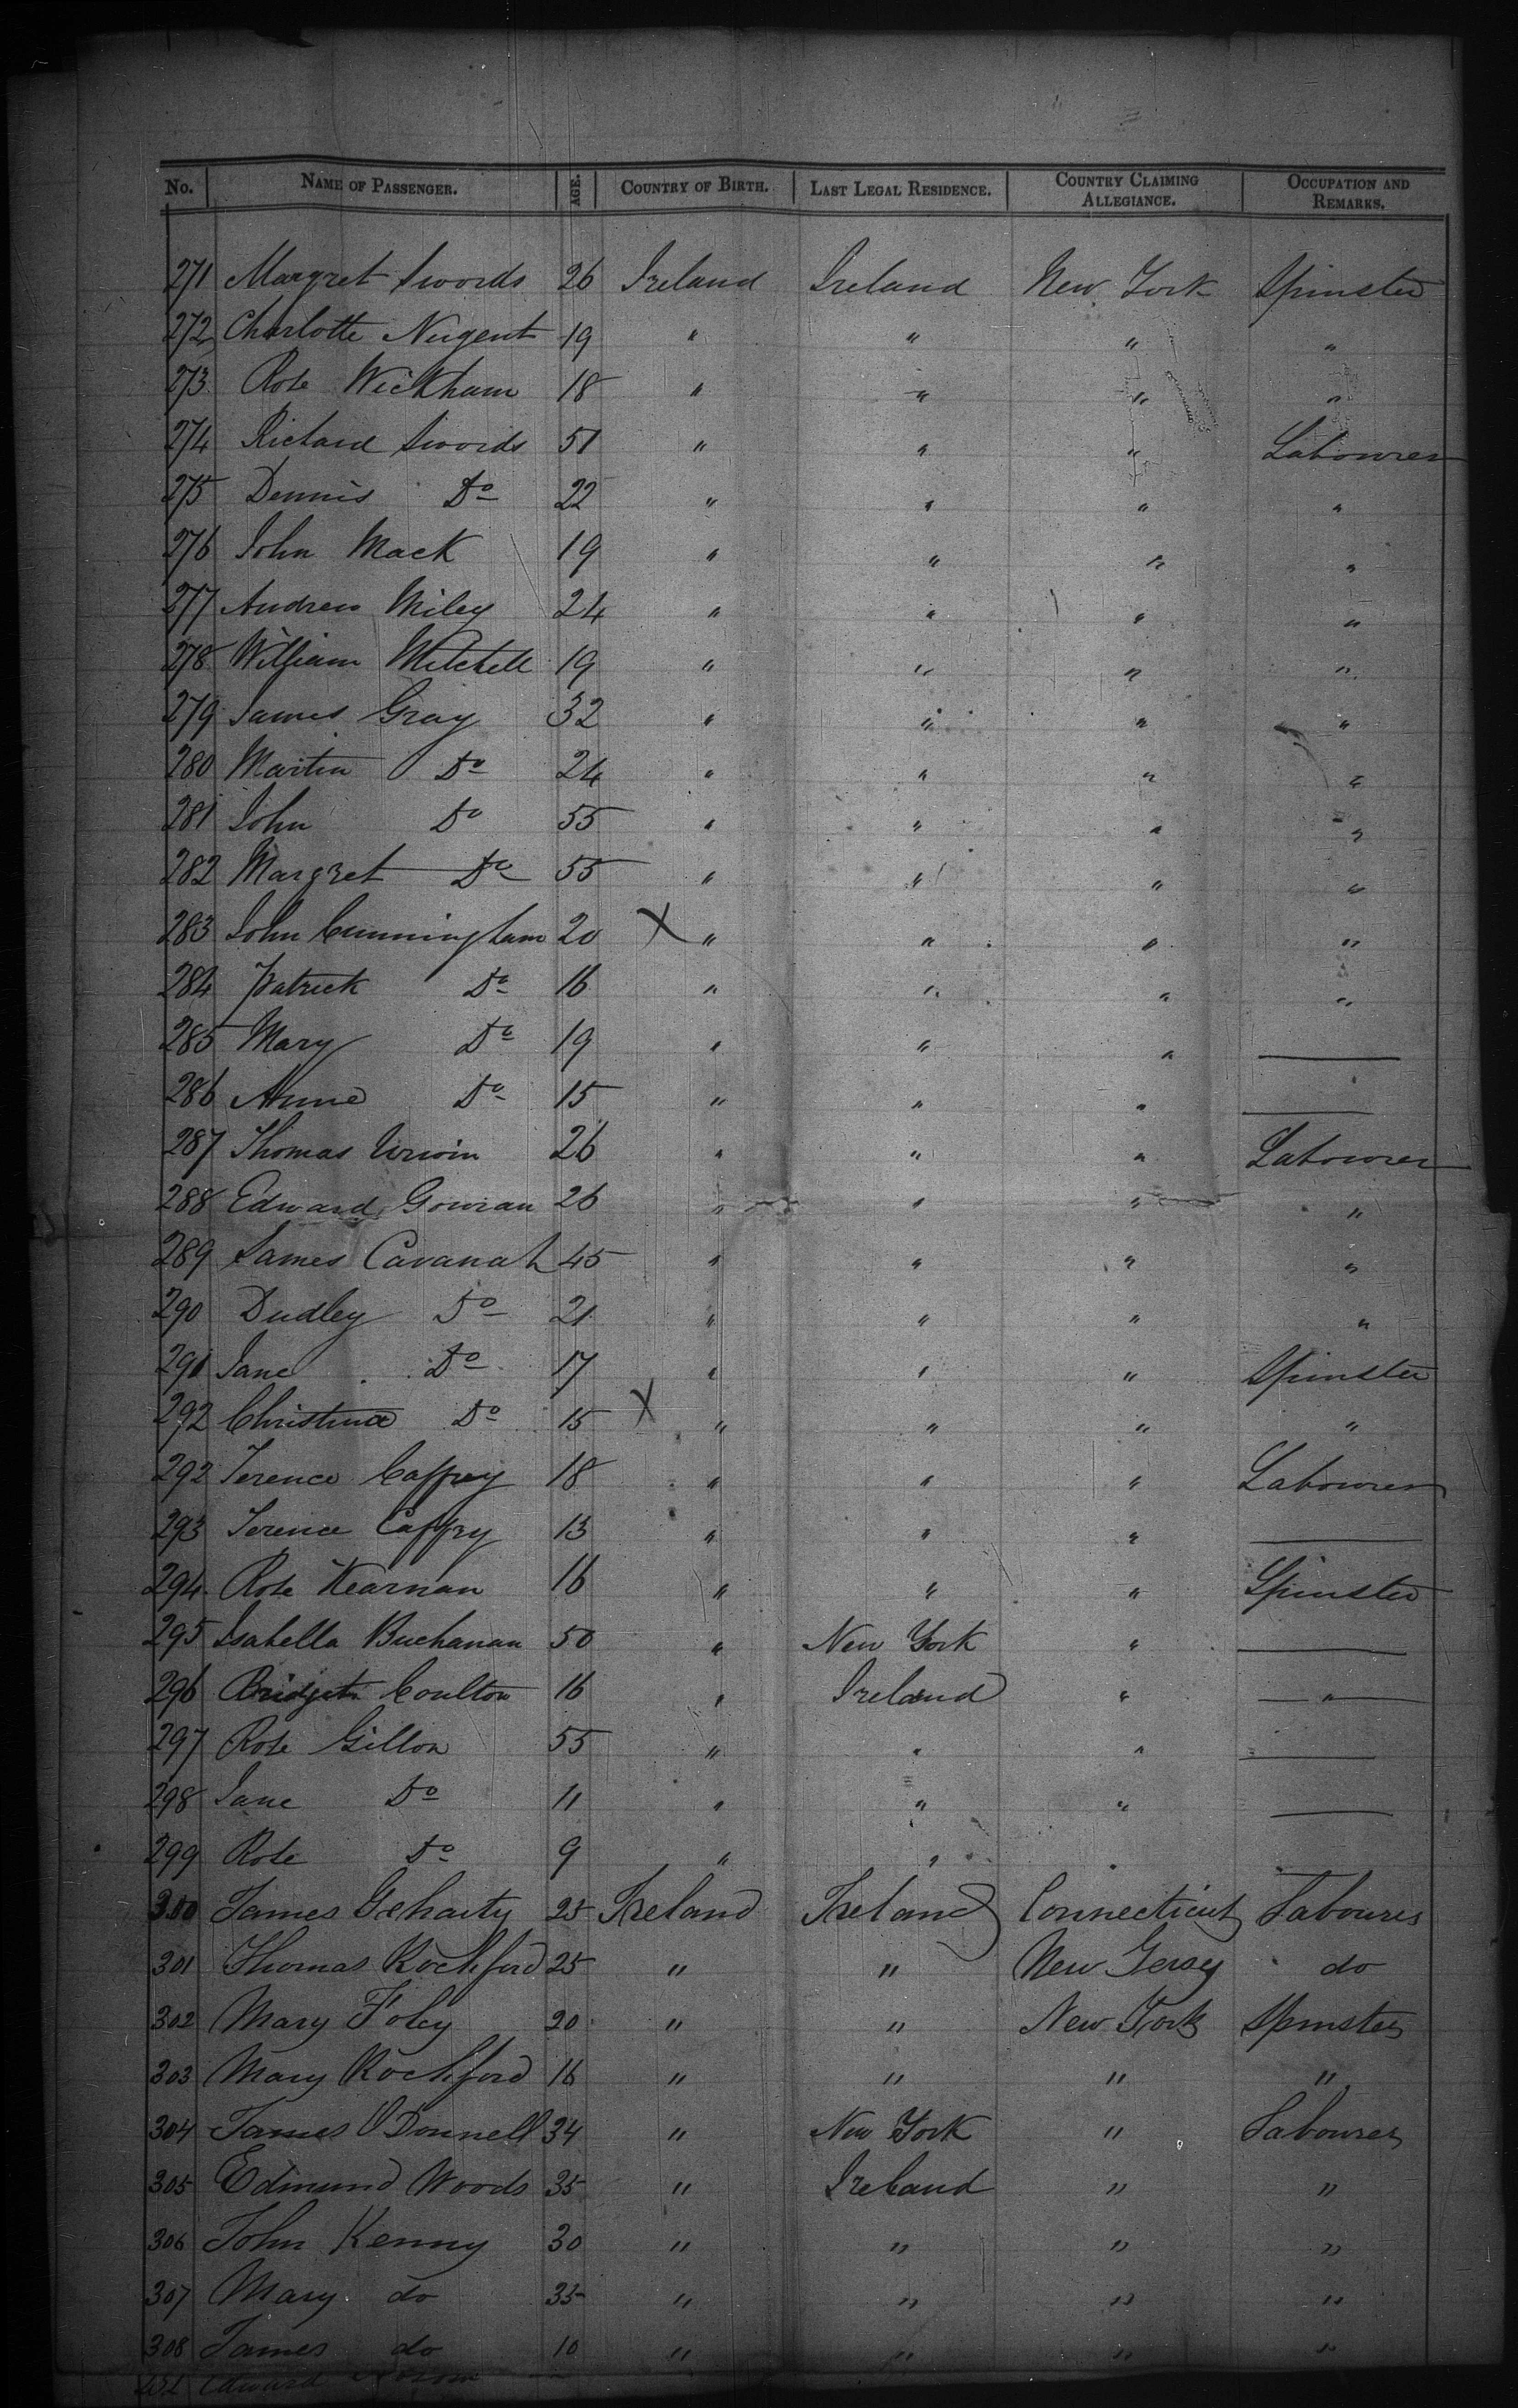 No. NAME OF PASSENGER. AGE. COUNTRY OF BIRTH. LAST LEGAL RESIDENCE. COUNTRY CLAIMING ALLEGIANCE. OCCUPATION AND REMARKS.
271 Margret Swords 26 Ireland Ireland New York Spinster
272 Charlotte Nugent 19 " " " "
273 Rose Wickham 18 " " " "
274 Richard Swords 51 " " " Labourer
275 Dennis Do 22 " " " "
276 John Mack 19 " " " "
277 Andrew Miley 24 " " " "
278 William Mitchell 19 " " " "
279 James Gray 32 " " " "
280 Martin Do 24 " " " "
281 John Do 55 " " " "
282 Margret Do 55 " " " "
283 John Cunningham 20 X " " " "
284 Patrick Do 16 " " " "
285 Mary Do 19 " " " —
286 Anne Do 15 " " " —
287 Thomas Urwin 26 " " " Labourer
288 Edward Gowran 26 " " " "
289 James Cavanah 45 " " " "
290 Dudley Do 21 " " " "
291 Jane Do 17 " " " Spinster
292 Christina Do 15 X " " " "
292 Terence Caffrey 18 " " " Labourer
293 Terence Caffry 13 " " " —
294 Rose Kearnan 16 " " " Spinster
295 Isabella Buchanan 50 " New York " —
296 Bridget Coulton 16 " Ireland " — " —
297 Rose Gillon 55 " " " —
298 Jane Do 11 " " " —
299 Rose Do 9 " "
300 James Geharty 25 Ireland Ireland Connecticut Labourer
301 Thomas Rochford 25 " " New Jersy do
302 Mary Foley 20 " " New York Spinster
303 Mary Rochford 18 " " " "
304 James O'Donnell 34 " New York " Labourer
305 Edmund Woods 35 " Ireland " "
306 John Kenny 30 " " " "
307 Mary do 35 " " " "
308 James do 10 " " " "
Edward